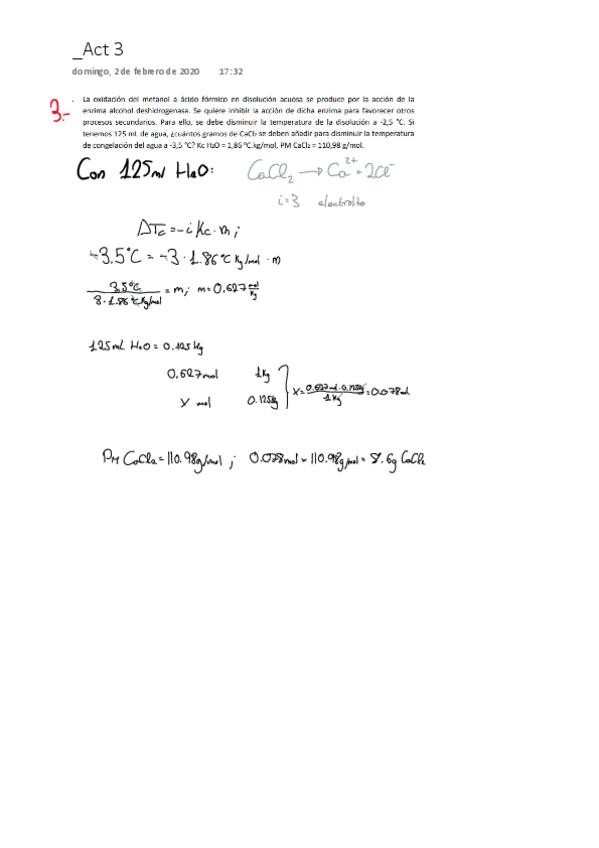 _Act 3
domingo, 2 de febrero de 2020 17:32
3.- La oxidación del metanol a ácido fórmico en disolución acuosa se produce por la acción de la
enzima alcohol deshidrogenasa. Se quiere inhibir la acción de dicha enzima para favorecer otros
procesos secundarios. Para ello, se debe disminuir la temperatura de la disolución a -2,5 °C. Si
tenemos 125 mL de agua, ¿cuántos gramos de CaCl₂ se deben añadir para disminuir la temperatura
de congelación del agua a -3,5 °C? Kc H₂O = 1,86 °C.kg/mol, PM CaCl₂ = 110,98 g/mol.
Con 125ml H₂O: CaCl₂ → Ca²⁺ + 2Cl⁻
i=3 electrolito
ΔTc = -i Kc · m;
-3.5°C = -3 · 1.86 °C Kg/mol · m
3.5°C / 3 · 1.86 °C Kg/mol = m; m = 0.627 mol/Kg
125mL H₂O = 0.125 Kg
0.627 mol 1Kg
X mol 0.125Kg X = 0.627 mol · 0.125Kg / 1Kg = 0.078 mol
PM CaCl₂ = 110.98g/mol ; 0.078mol · 110.98g/mol = 8.6g CaCl₂